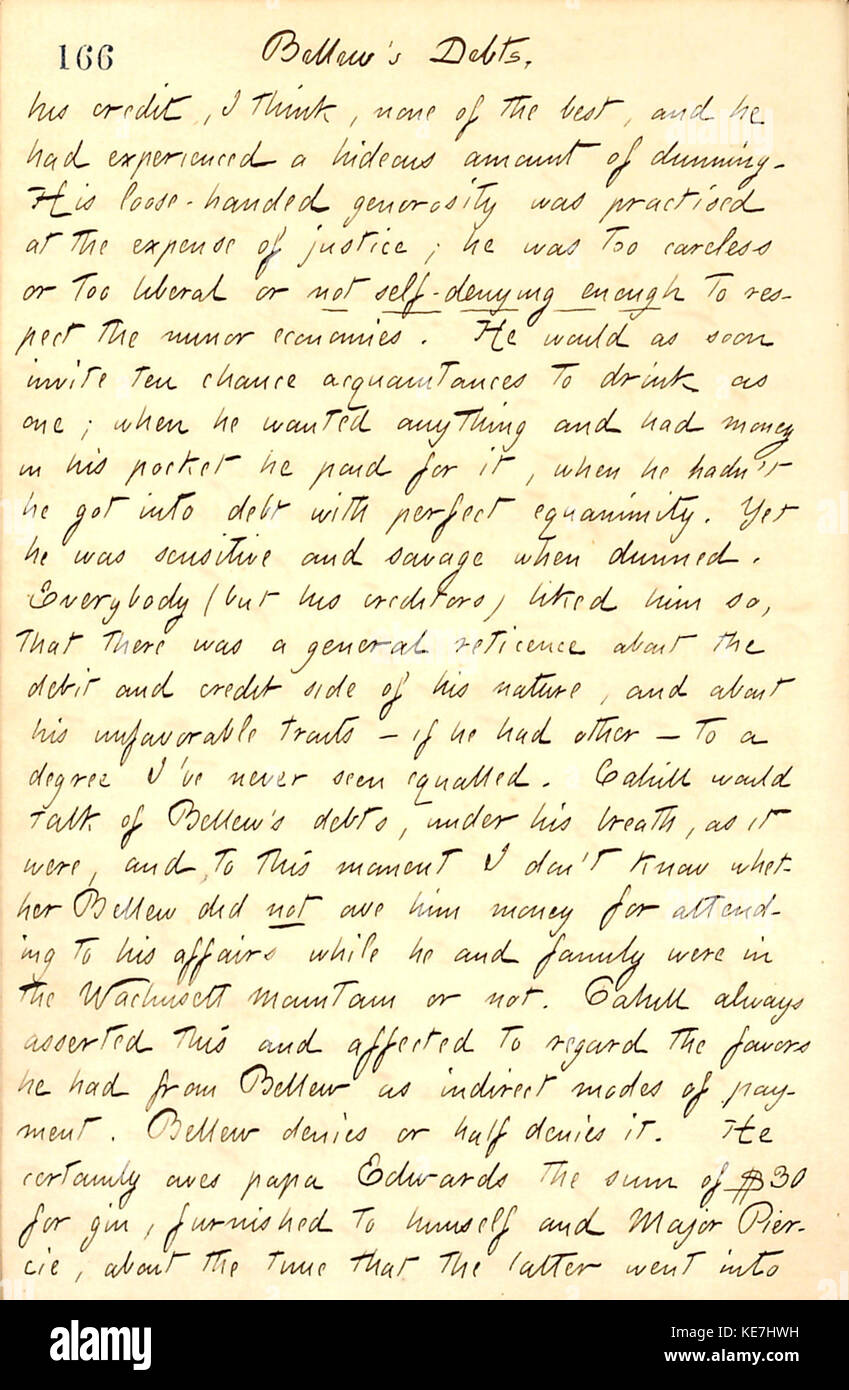 166 Bellew's Debts.
his credit, I think, none of the best, and he
had experienced a hideous amount of dunning.
His loose-handed generosity was practised
at the expense of justice; he was too careless
or too liberal or not self-denying enough to res-
pect the minor economies. He would as soon
invite ten chance acquaintances to drink as
one; when he wanted anything and had money
in his pocket he paid for it, when he hadn't
he got into debt with perfect equanimity. Yet
he was sensitive and savage when dunned.
Everybody (but his creditors) liked him so,
that there was a general reticence about the
debit and credit side of his nature, and about
his unfavorable traits — if he had other — to a
degree I've never seen equalled. Cahill would
talk of Bellew's debts, under his breath, as it
were, and, to this moment I don't know whet-
her Bellew did not owe him money for attend-
ing to his affairs while he and family were in
the Wachusett mountain or not. Cahill always
asserted this and affected to regard the favors
he had from Bellew as indirect modes of pay-
ment. Bellew denies or half denies it. He
certainly owes papa Edwards the sum of $30
for gin, furnished to himself and Major Pier-
cie, about the time that the latter went into
alamy
Image ID: KE7HWH
www.alamy.com